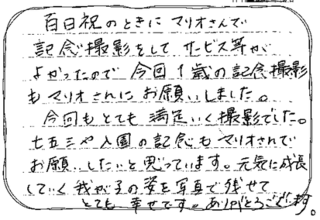 百日祝のときに マリオさんで
記念撮影をして サービス等が
よかったので 今回1歳の記念撮影
もマリオさんにお願いしました。
今回もとても 満足いく撮影でした。
七五三や入園の記念もマリオさんで
お願いしたいと思っています。元気に成長
していく我が子の姿を写真で残せて
とても 幸せです。ありがとうございます。